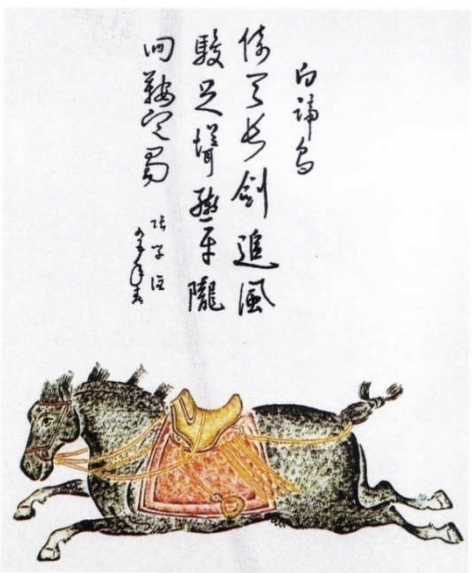 白蹄烏
倚天长劍追風
駿足聳轡平隴
回鞍定蜀